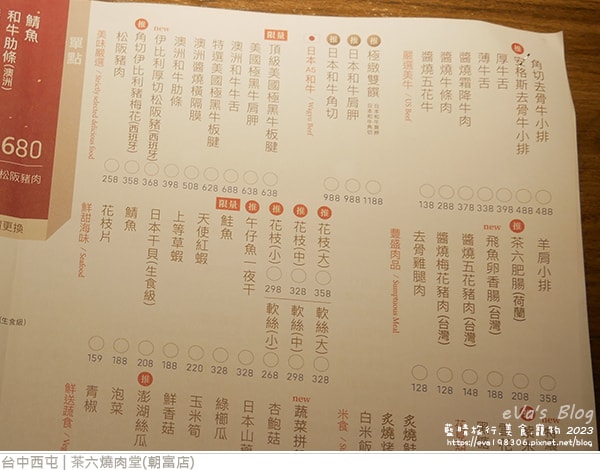 角切去骨牛小排 488
推 安格斯去骨牛小排 488
厚牛舌 398
薄牛舌 338
醬燒霜降牛肉 378
醬燒牛條肉 288
醬燒五花牛 138
嚴選美牛 / US Beef
推 極緻雙饌 日本和牛肩胛 日本和牛角切 1188
推 日本和牛肩胛 988
推 日本和牛角切 988
日本A5和牛 / Wagyu Beef
限量 頂級美國極黑牛板腱 638
美國極黑牛肩胛 638
澳洲和牛牛舌 688
特選美國極黑牛板腱 628
澳洲醬燒橫隔膜 508
澳洲和牛肋條 398
new 伊比利厚切松阪豬(西班牙) 368
推 角切伊比利豬梅花(西班牙) 358
松阪豬肉 258
美味嚴選 / Strictly selected delicious food
單點
羊肩小排 358
推 茶六肥腸(荷蘭) 208
new 飛魚卵香腸(台灣) 188
醬燒五花豬肉(台灣) 148
醬燒梅花豬肉(台灣) 128
去骨雞腿肉 128
豐盛肉品 / Sumptuous Meal
推 花枝(大) 358
軟絲(大) 328
推 花枝(中) 328
軟絲(中) 298
推 花枝(小) 298
軟絲(小) 268
推 午仔魚一夜干 228
限量 鮭魚 228
天使紅蝦 330
上等草蝦 188
日本干貝(生食級) 208
鯖魚 188
花枝片 159
鮮甜海味 / Seafood
炙燒
炙燒
白米飯
米食
new 蔬菜拼
杏鮑菇
日本山
綠櫛瓜
玉米筍
鮮香菇
推 澎湖絲瓜
泡菜
青椒
鮮送蔬食
鯖魚
和牛肋條(澳洲)
680
松阪豬肉
更換
生食級)
eVa's Blog
藍晴旅行.美食.寵物 2023
https://eva198306.pixnet.net/blog
台中西屯 | 茶六燒肉堂(朝富店)